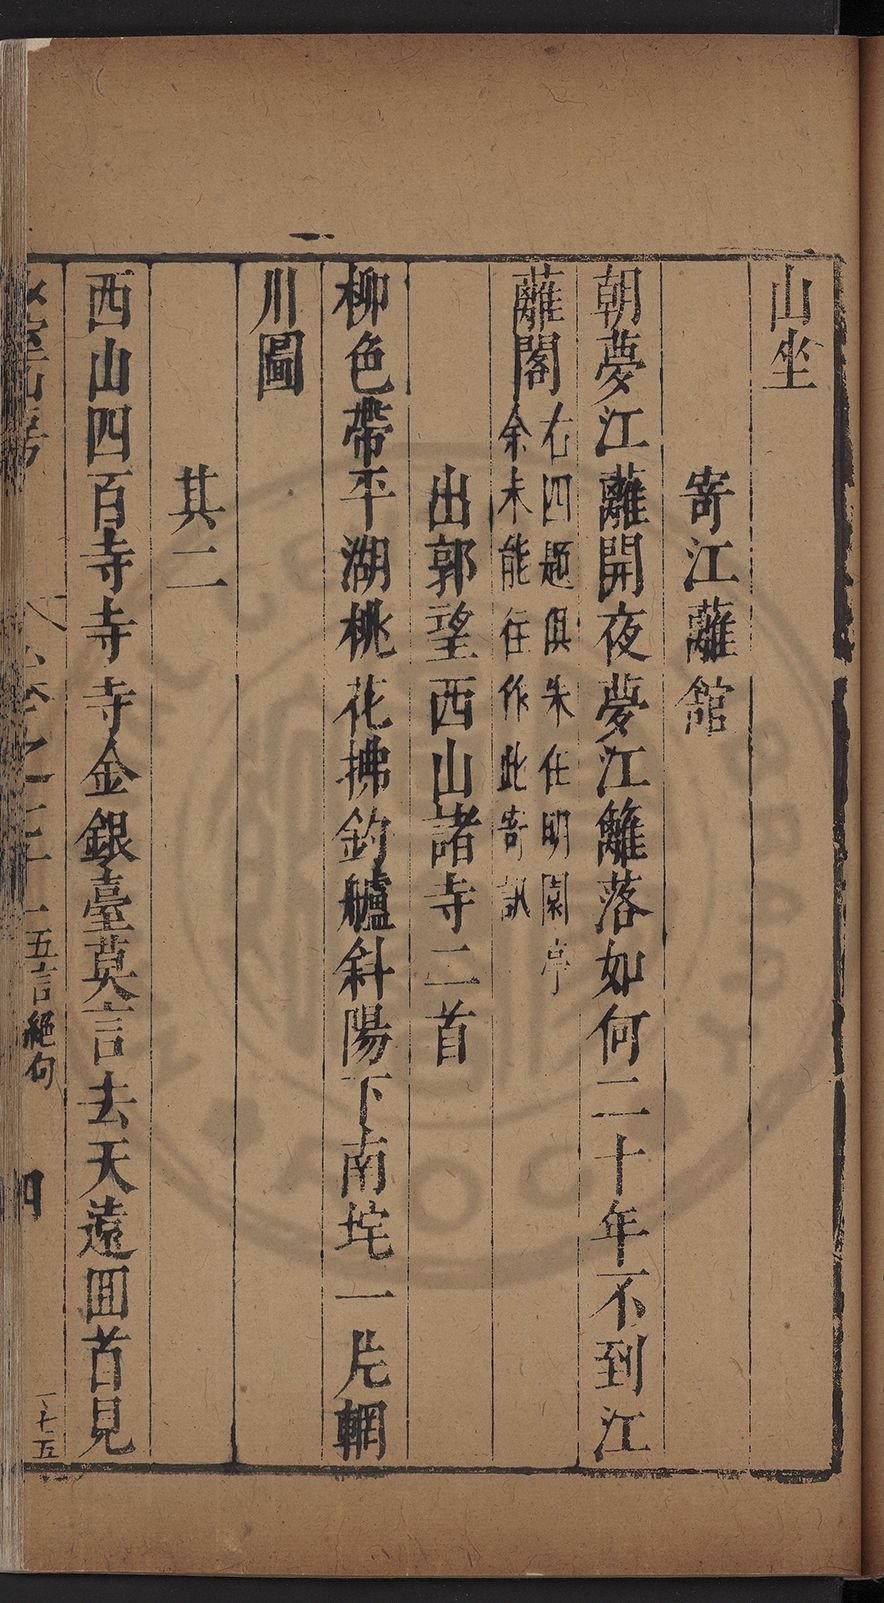 山坐
寄江蘺館
朝夢江蘺開夜夢江籬落如何二十年不到江
蘺閣
右四題俱朱任明園亭
余未能往作此寄訊
出郭望西山諸寺二首
柳色帶平湖桃花拂釣艫斜陽下南垞一片輞
川圖
其二
西山四百寺寺寺金銀臺莫言去天遠回首見
山房
卷之三
五言絕句
四
一七五